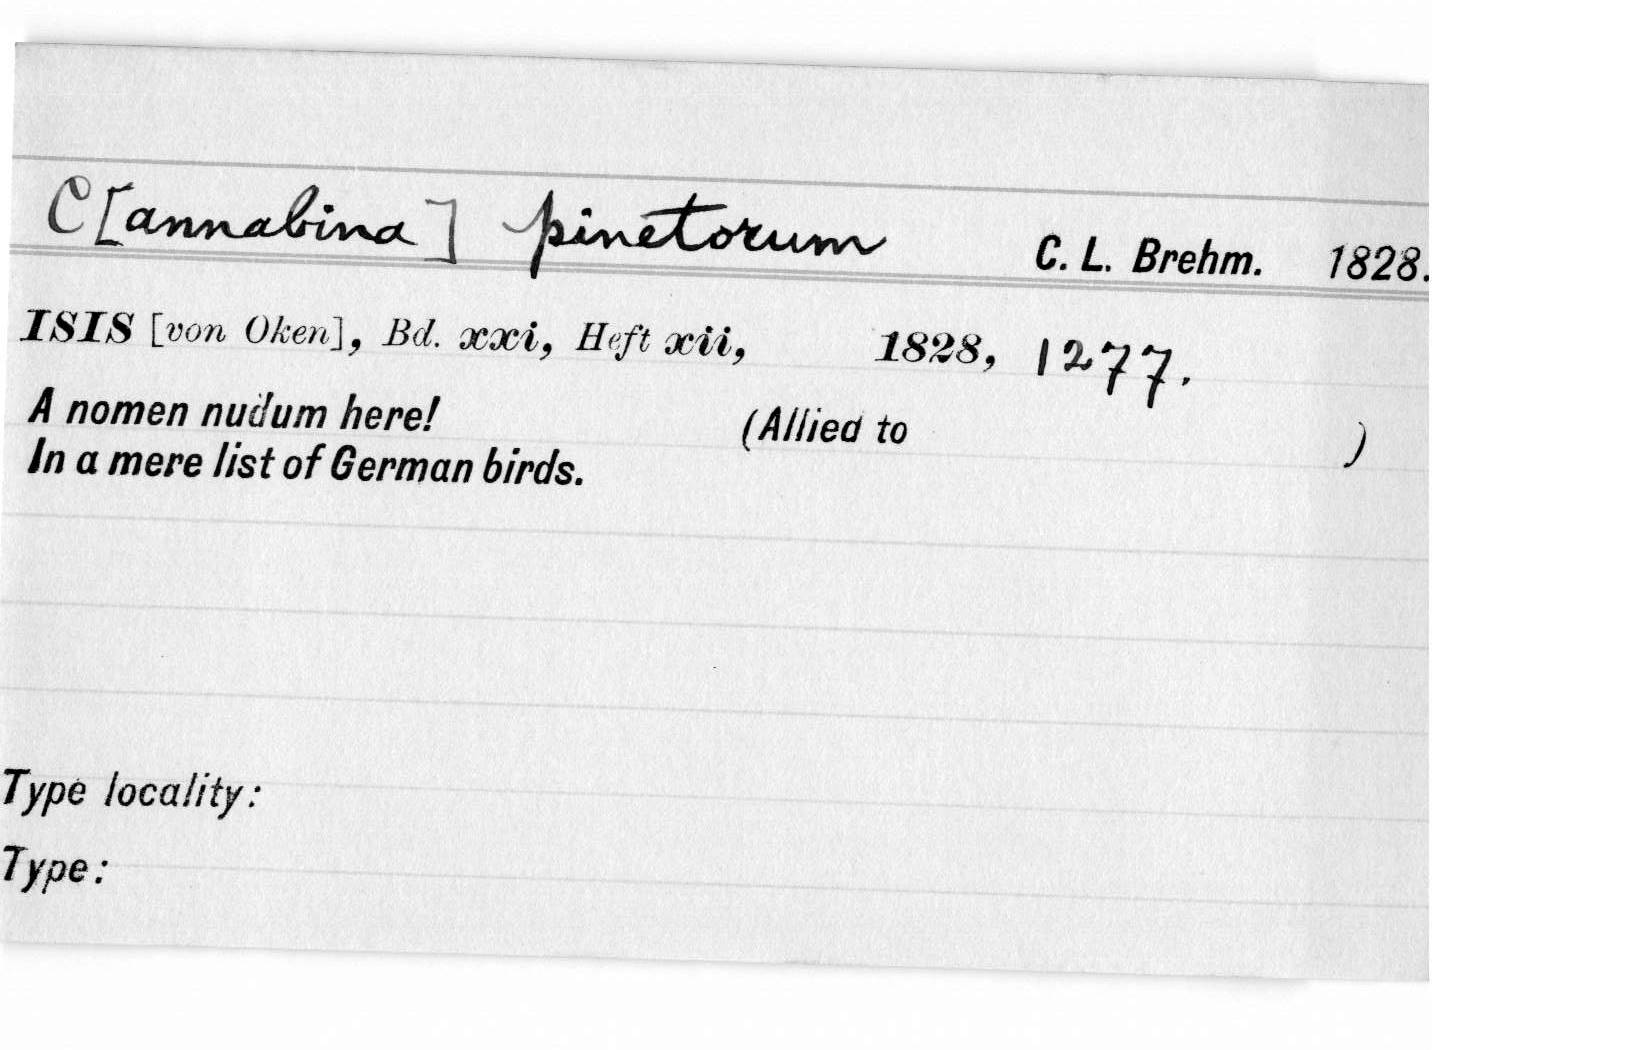 C[annabina] pinetorum C. L. Brehm. 1828.
ISIS [von Oken], Bd. xxi, Heft xii, 1828, 1277.
A nomen nudum here! (Allied to )
In a mere list of German birds.
Type locality:
Type: